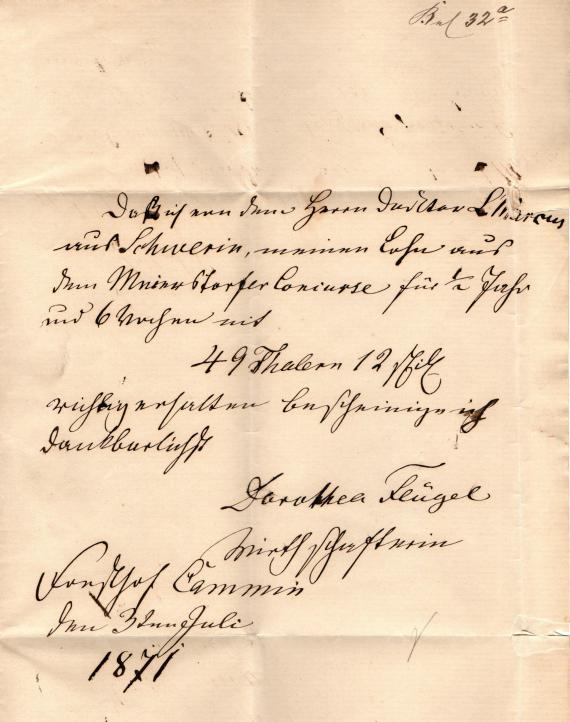 Bel 32a
Daß ich von dem Herrn Docktor L Marcus
aus Schwerin, meinen Lohn aus
dem Meierstorfer Concurse für 1/2 Jahr
und 6 Wochen mit
49 Thalern 12 ßl
richtig erhalten bescheinige ich
dankbarlichst
Dorothea Flügel
Wirthschafterin
Forsthof Cammin
den 3ten Juli
1871